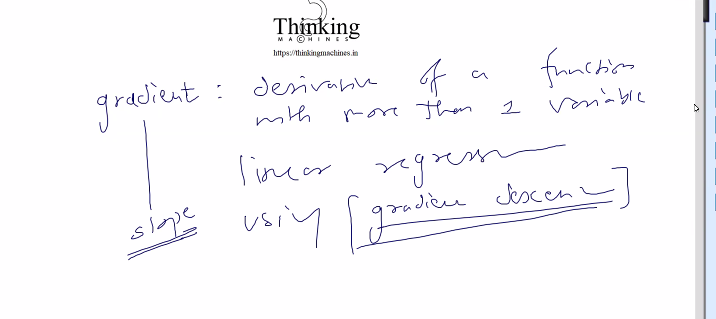 Thinking
MACHINES
https://thinkingmachines.in
gradient : derivative of a function
with more than 1 variable
linear regression
slope using [gradient descent]